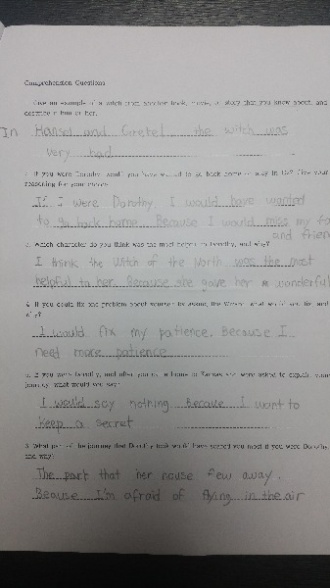 Comprehension Questions
1. Give an example of a witch from another book, movie, or story that you know about, and
describe him or her.
In Hansel and Gretel the witch was
very bad
2. If you were Dorothy, would you have wanted to go back home or stay in Oz? Give your
reasoning for your answer.
If I were Dorothy, I would have wanted
to go back home. Because I would miss my
and
3. Which character do you think was the most helpful to Dorothy, and why?
I think the witch of the North was the most
helpful to her. Because she gave her a wonderful
4. If you could fix one problem about yourself by asking the Wizard, what would you fix and
why?
I would fix my patience. Because I
need more patience
5. If you were Dorothy, and after you came home to Kansas you were asked to explain your
journey, what would you say?
I would say nothing Because I want to
keep a secret
6. What part of the journey that Dorothy took would have scared you most if you were Dorothy,
and why?
The part that her house flew away.
Beause I'm afraid of flying in the air